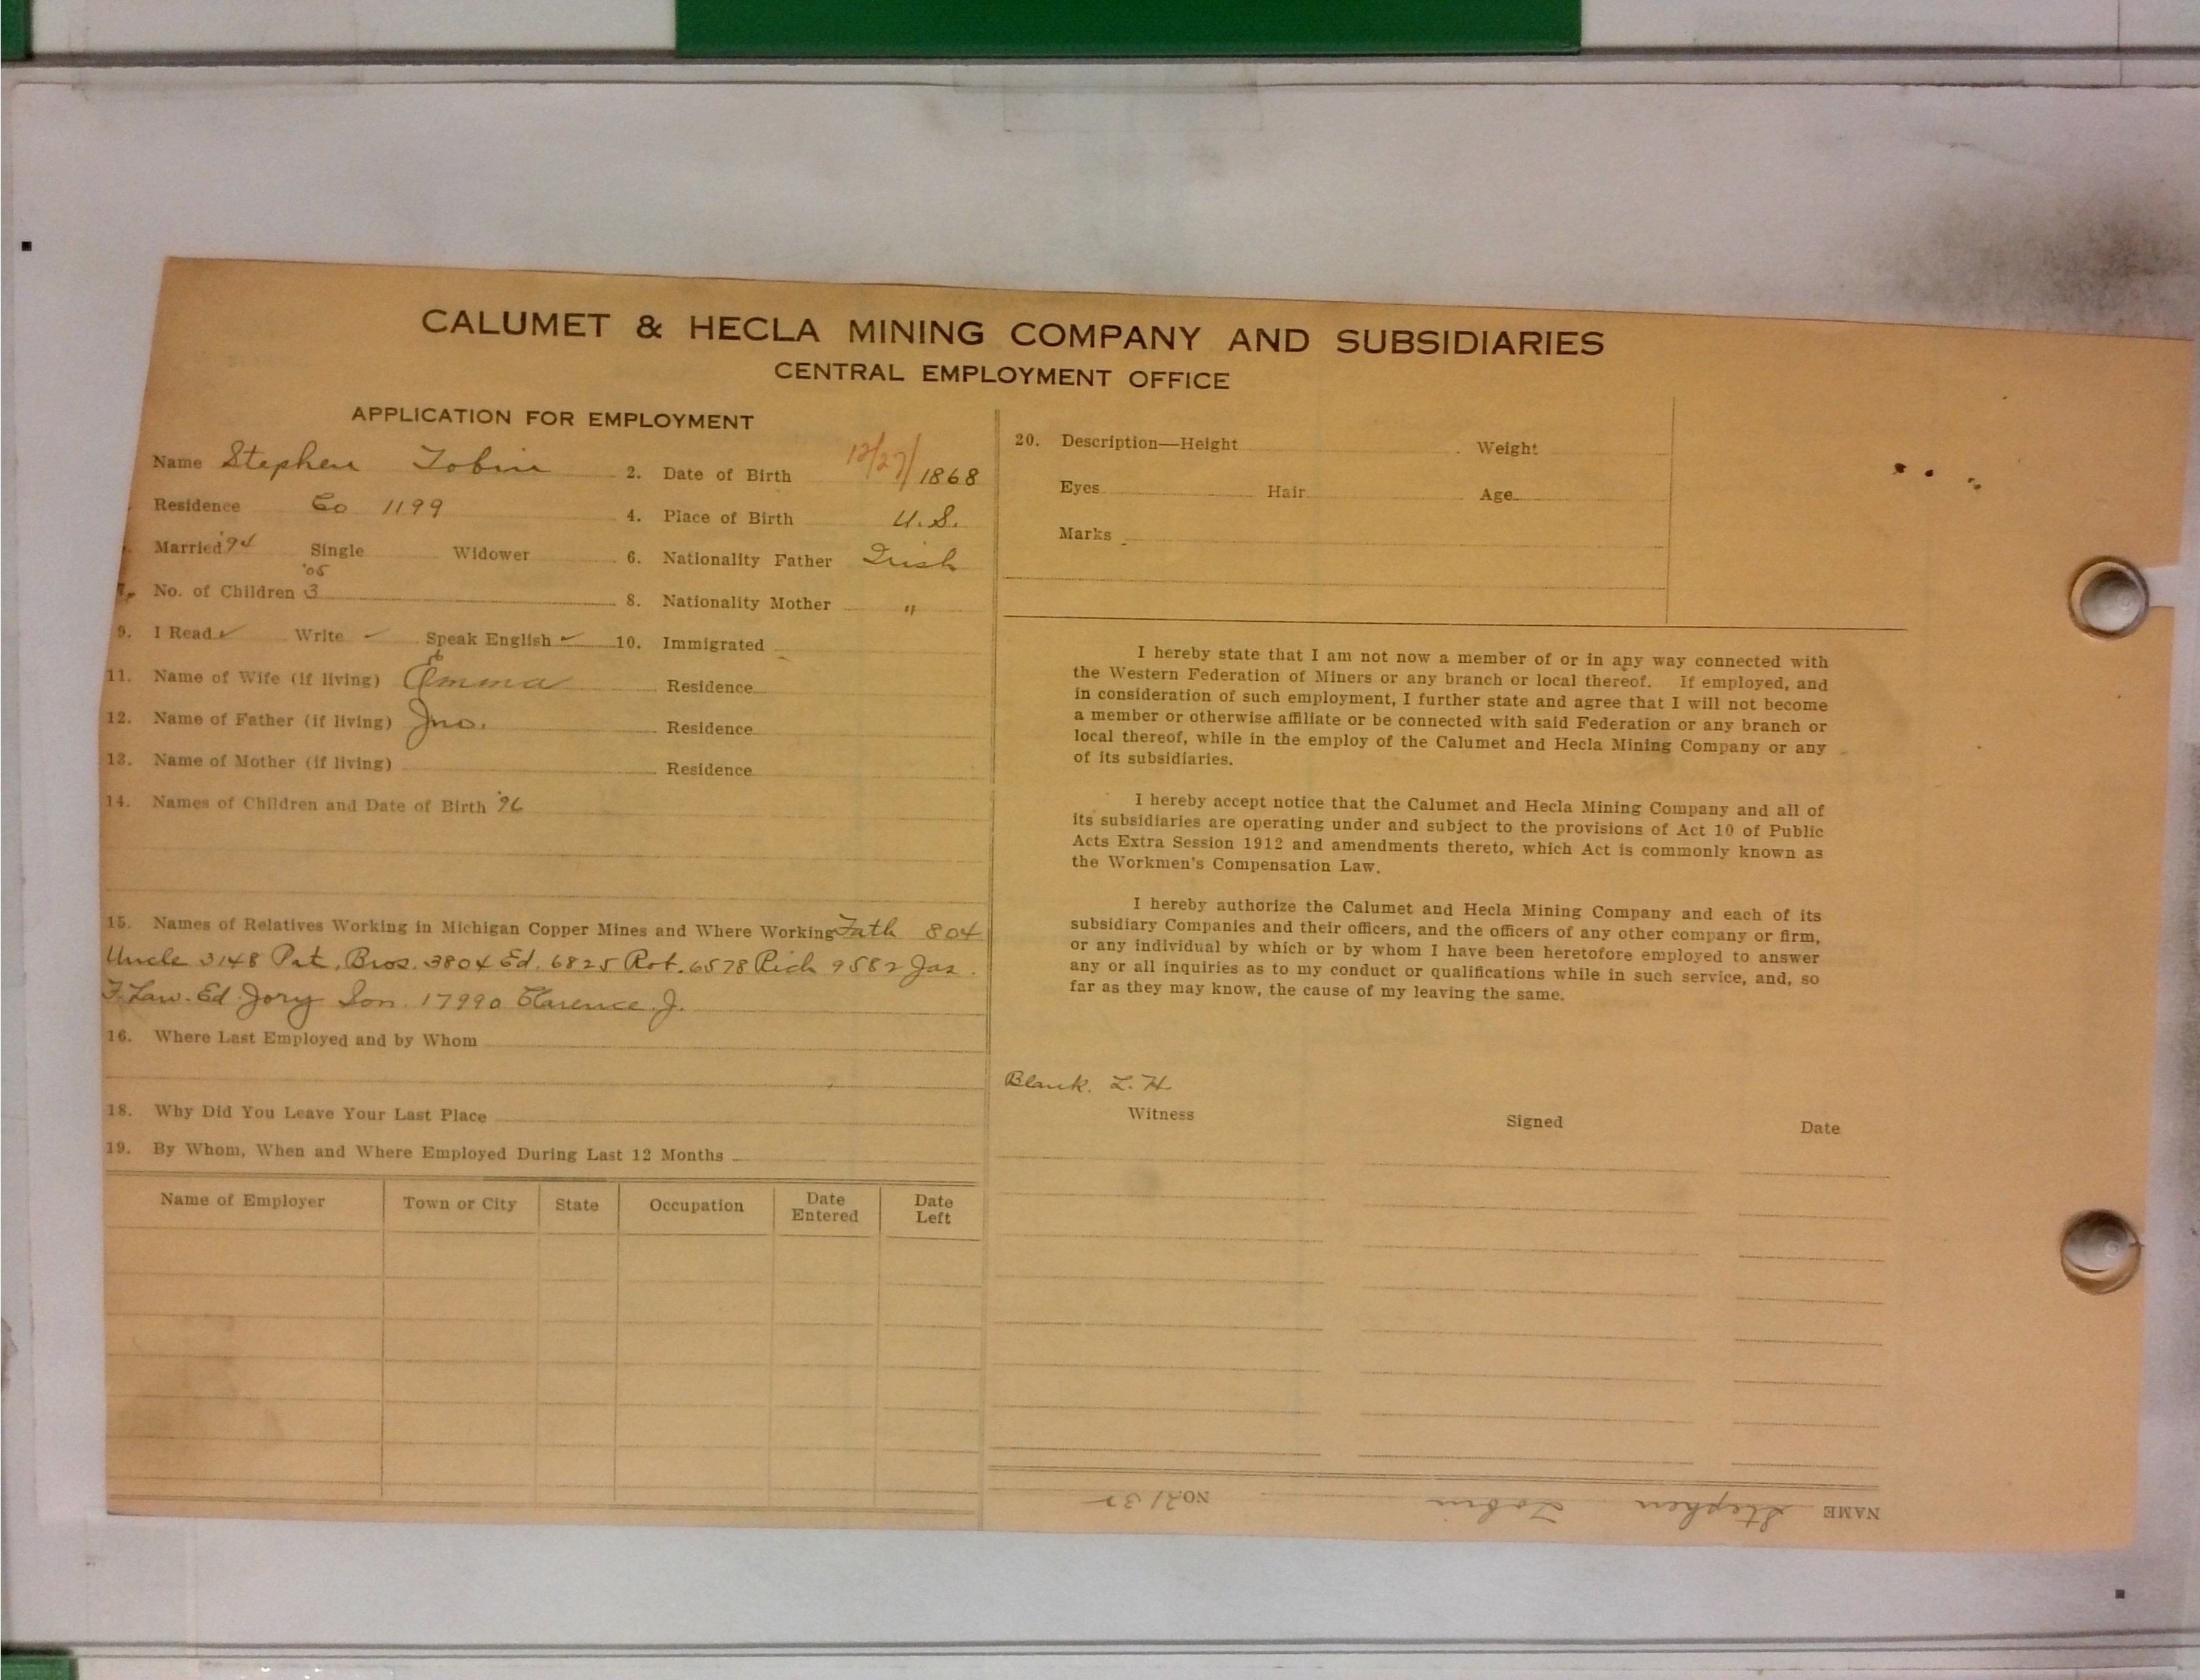 CALUMET & HECLA MINING COMPANY AND SUBSIDIARIES
CENTRAL EMPLOYMENT OFFICE
APPLICATION FOR EMPLOYMENT
Name Stephen Tobin 2. Date of Birth 12/27/1868
Residence Co 1199 4. Place of Birth U.S.
Married '94 Single Widower 6. Nationality Father Irish
'05
7. No. of Children 3 8. Nationality Mother "
9. I Read ✓ Write ✓ Speak English ✓ 10. Immigrated
11. Name of Wife (if living) Emma Residence
12. Name of Father (if living) Jno. Residence
13. Name of Mother (if living) Residence
14. Names of Children and Date of Birth '96
15. Names of Relatives Working in Michigan Copper Mines and Where Working Fath 804
Uncle 3148 Pat, Bros. 3804 Ed. 6825 Rot. 6578 Rich 9582 Jas.
F. Law. Ed Jory Son 17990 Clarence J.
16. Where Last Employed and by Whom
18. Why Did You Leave Your Last Place
19. By Whom, When and Where Employed During Last 12 Months
Name of Employer Town or City State Occupation Date Entered Date Left
20. Description—Height Weight
Eyes Hair Age
Marks
I hereby state that I am not now a member of or in any way connected with
the Western Federation of Miners or any branch or local thereof. If employed, and
in consideration of such employment, I further state and agree that I will not become
a member or otherwise affiliate or be connected with said Federation or any branch or
local thereof, while in the employ of the Calumet and Hecla Mining Company or any
of its subsidiaries.
I hereby accept notice that the Calumet and Hecla Mining Company and all of
its subsidiaries are operating under and subject to the provisions of Act 10 of Public
Acts Extra Session 1912 and amendments thereto, which Act is commonly known as
the Workmen's Compensation Law.
I hereby authorize the Calumet and Hecla Mining Company and each of its
subsidiary Companies and their officers, and the officers of any other company or firm,
or any individual by which or by whom I have been heretofore employed to answer
any or all inquiries as to my conduct or qualifications while in such service, and, so
far as they may know, the cause of my leaving the same.
Blank. L. H.
Witness Signed Date
NAME Stephen Tobin NO. 2132